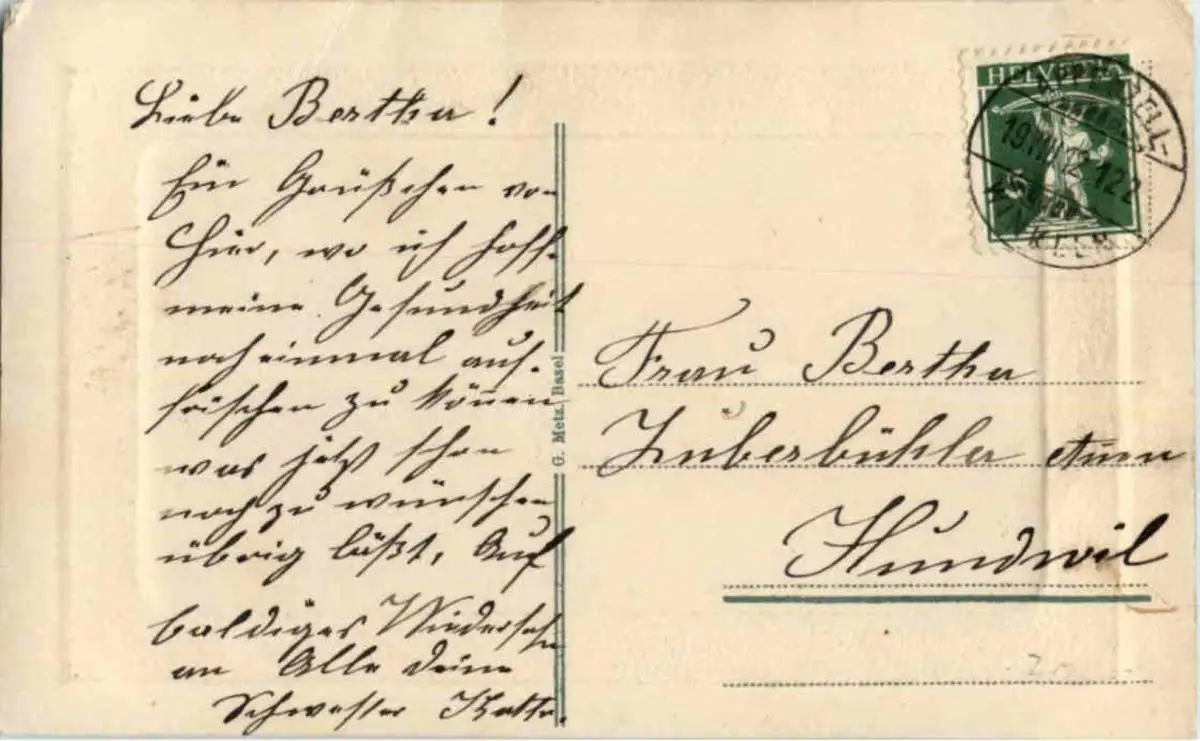 Liebe Bertha!
Ein Grüßchen von
hier, wo ich hoffe
meine Gesundheit
noch einmal auf-
frischen zu können
was jetzt schon
noch zu wünschen
übrig läßt, Auf
baldiges Wiedersehn
an Alle deine
Schwester
G. Metz, Basel
HELVETIA
APPENZELL-
19. VIII. 12
Frau Bertha
Zuberbühler
Hundwil